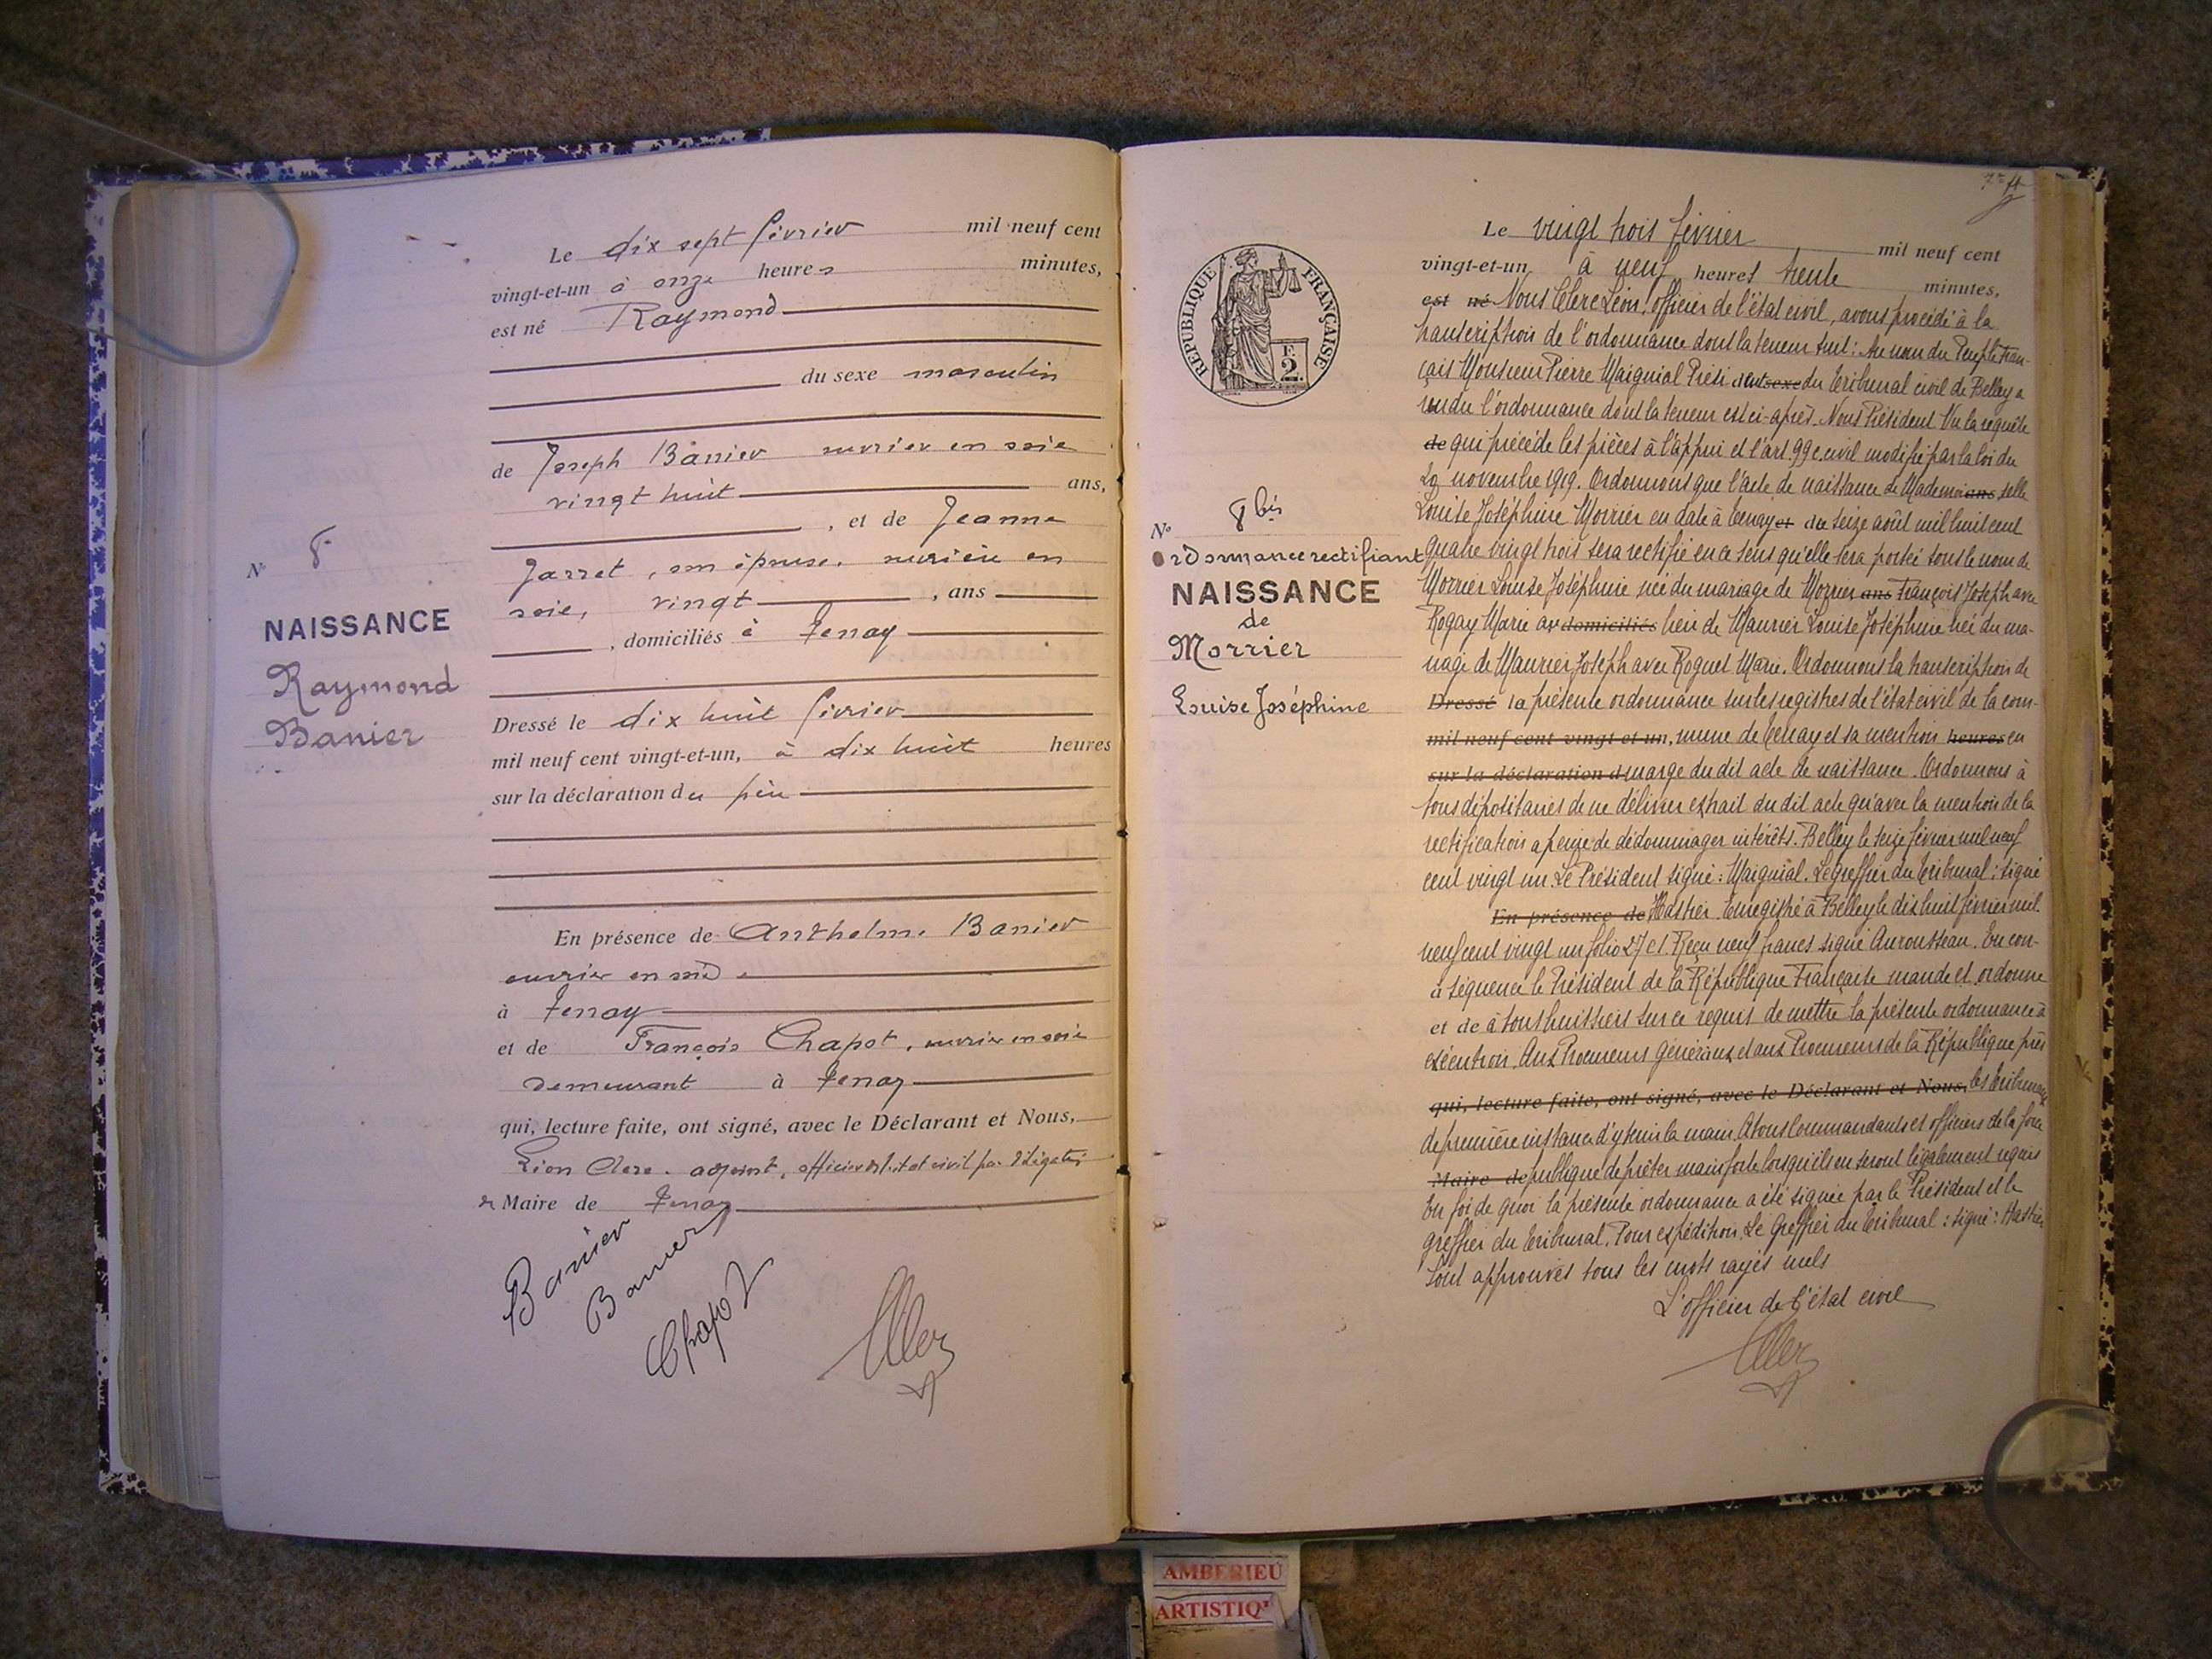 Le dix sept février mil neuf cent
vingt-et-un à onze heures minutes,
est né Raymond
du sexe masculin
de Joseph Banier ouvrier en soie
vingt huit ans,
, et de Jeanne
Jarret, son épouse, ouvrière en
soie, vingt , ans
, domiciliés à Tenay
Dressé le dix huit février
mil neuf cent vingt-et-un, à dix huit heures
sur la déclaration du père
En présence de Anthelme Banier
ouvrier en soie
à Tenay
et de François Chapot, ouvrier en soie
demeurant à Tenay
qui, lecture faite, ont signé, avec le Déclarant et Nous,
Léon Clerc. adjoint, officier de l'état civil par délégation
Maire de Tenay
Banier
Banier
Chapot
N° 8
NAISSANCE
Raymond
Banier
RÉPUBLIQUE FRANÇAISE
F.
2.
N° 8 bis
ordonnance rectifiant
NAISSANCE
de
Morrier
Louise Joséphine
Le vingt trois février mil neuf cent
vingt-et-un à neuf heures trente minutes,
est né Nous Clerc Léon, officier de l'état civil, avons procédé à la
transcription de l'ordonnance dont la teneur suit : Au nom du Peuple Fran-
çais Monsieur Pierre Maiguial Président sexe du Tribunal civil de Belley a
rendu l'ordonnance dont la teneur est ci-après. Nous Président Vu la requête
de qui précède les pièces à l'appui et l'art. 99 c. civil modifié par la loi du
20 novembre 1919. Ordonnons que l'acte de naissance de Mademoi ans selle
Louise Joséphine Morrier en date à Tenay et du seize août mil huit cent
quatre vingt trois sera rectifié en ce sens qu'elle sera portée sous le nom de
Morrier Louise Joséphine née du mariage de Morrier ans François Joseph avec
Rogay Marie au domiciliés lieu de Maurier Louise Joséphine née du ma-
riage de Maurier Joseph avec Roguet Marie. Ordonnons la transcription de
Dressé la présente ordonnance sur les registres de l'état civil de la com-
mil neuf cent vingt et un, mune de Tenay et sa mention heures en
sur la déclaration d marge du dit acte de naissance. Ordonnons à
tous dépositaires de ne délivrer extrait du dit acte qu'avec la mention de la
rectification a peine de dédommager intérêts. Belley le seize février mil neuf
cent vingt un. Le Président signé : Maiguial. Le greffier du Tribunal : signé
En présence de Hastier. Enregistré à Belley le dix huit février mil
neuf cent vingt un folio 27 c 1. Reçu neuf francs signé Aurousseau. En con-
à séquence le Président de la République Française mande et ordonne
et de à tous huissiers sur ce requis de mettre la présente ordonnance à
exécution. Aux Procureurs généraux et aux Procureurs de la République près
qui, lecture faite, ont signé, avec le Déclarant et Nous, les tribunaux
de première instance d'y tenir la main. A tous Commandants et officiers de la force
Maire de publique de prêter main forte lorsqu'ils en seront légalement requis
En foi de quoi la présente ordonnance a été signée par le Président et le
greffier du Tribunal. Pour expédition. Le Greffier du Tribunal : signé : Hastier
Sont approuvés tous les mots rayés nuls
L'officier de l'état civil
AMBERIEU
ARTISTIQ